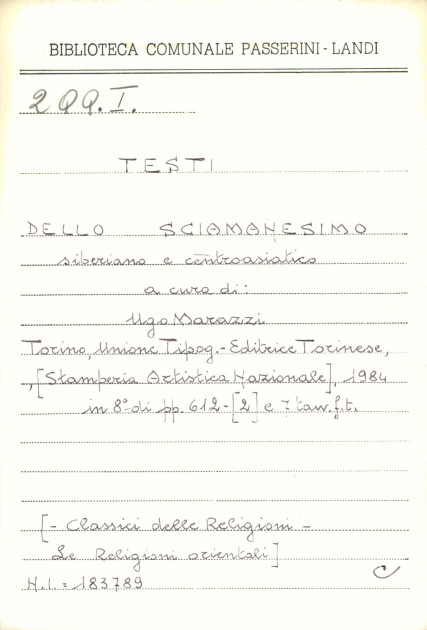 BIBLIOTECA COMUNALE PASSERINI - LANDI
2 QQ. I.
TESTI
DELLO SCIAMANESIMO
siberiano e centroasiatico
a cura di:
Ugo Marazzi
Torino, Unione Tipog.- Editrice Torinese,
, [Stamperia Artistica Nazionale], 1984
in 8° di pp. 612 - [2] e 7 tavv. f. t.
[- Classici delle Religioni -
Le Religioni orientali]
N.I. = 183789
C